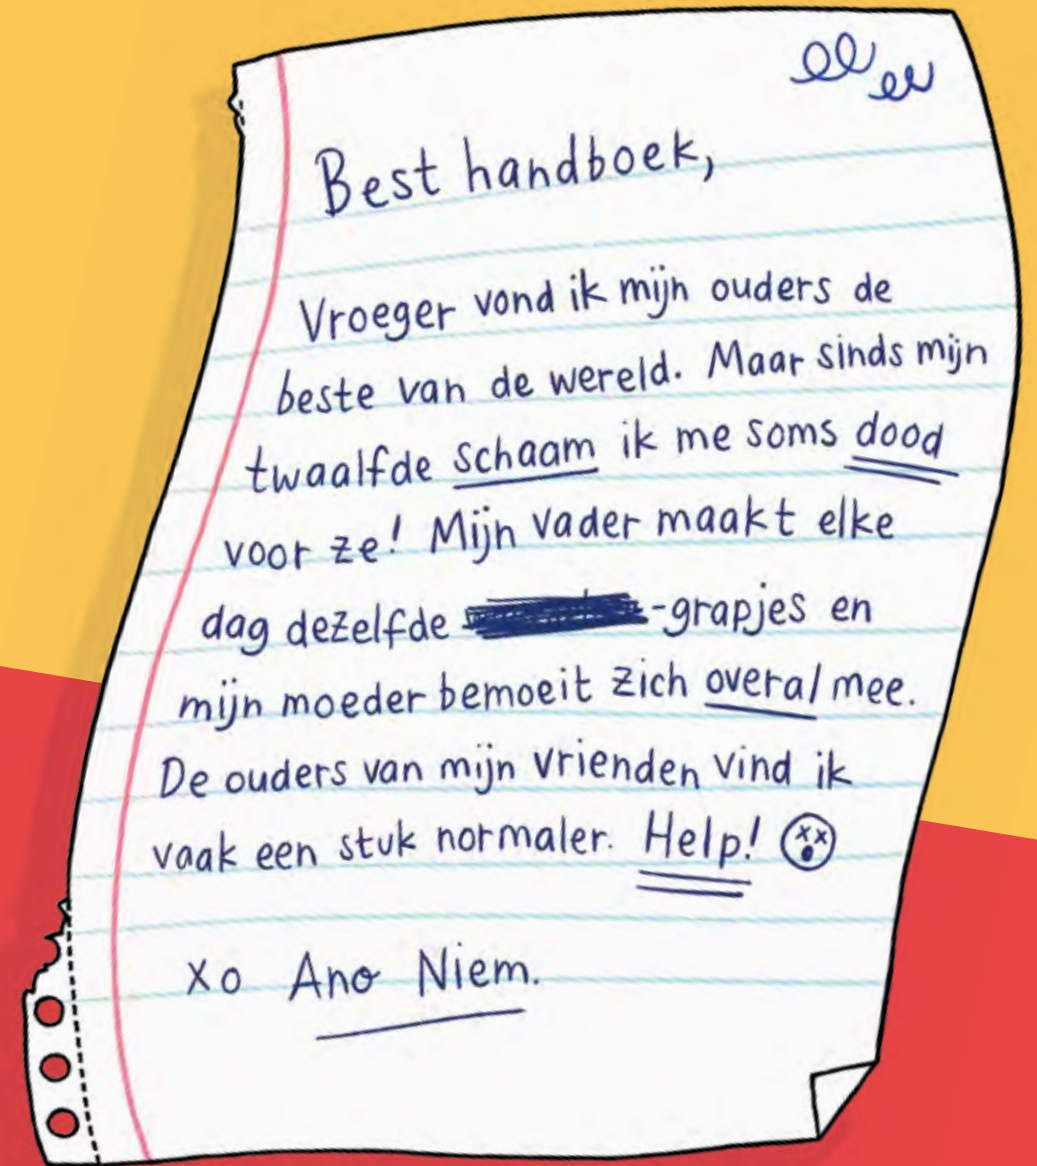 Best handboek,
Vroeger vond ik mijn ouders de
beste van de wereld. Maar sinds mijn
twaalfde schaam ik me soms dood
voor ze! Mijn vader maakt elke
dag dezelfde -grapjes en
mijn moeder bemoeit zich overal mee.
De ouders van mijn vrienden vind ik
vaak een stuk normaler. Help!
xo Ano Niem.